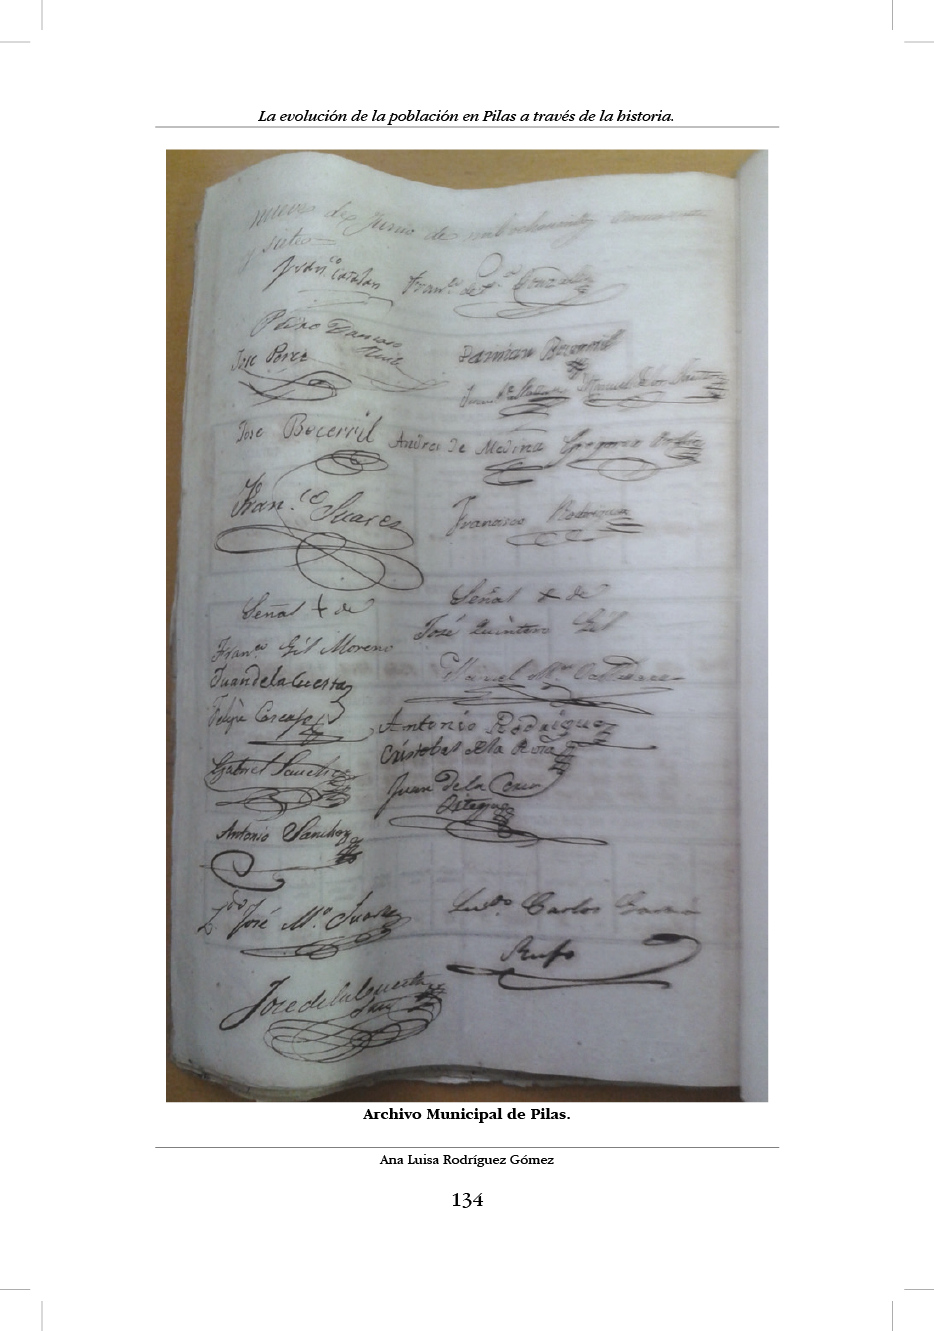 La evolución de la población en Pilas a través de la historia.
nueve de Junio de mil ochocientos cincuenta
y siete
Fran.co Catalan Fran.co de P. Gonzalez
Pedro Damaso
Ruiz
Jose Perez Damian Becerril
Manuel de los Santos
Jose Becerril Andres de Medina Gregorio
Fran.co Suarez Francisco Rodriguez
Señal + de Señal + de
Fran.co Gil Moreno José Quintero Gil
Juan de la Cuesta Manuel M.a
Felipe Antonio Rodriguez
Cristobal de la Rosa
Gabriel Sanchez Juan de la
Ortega
Antonio Sanchez
L.do José M.a Suarez Lu.do Carlos Garcia
Rufo
Jose de la Cuesta
Archivo Municipal de Pilas.
Ana Luisa Rodríguez Gómez
134